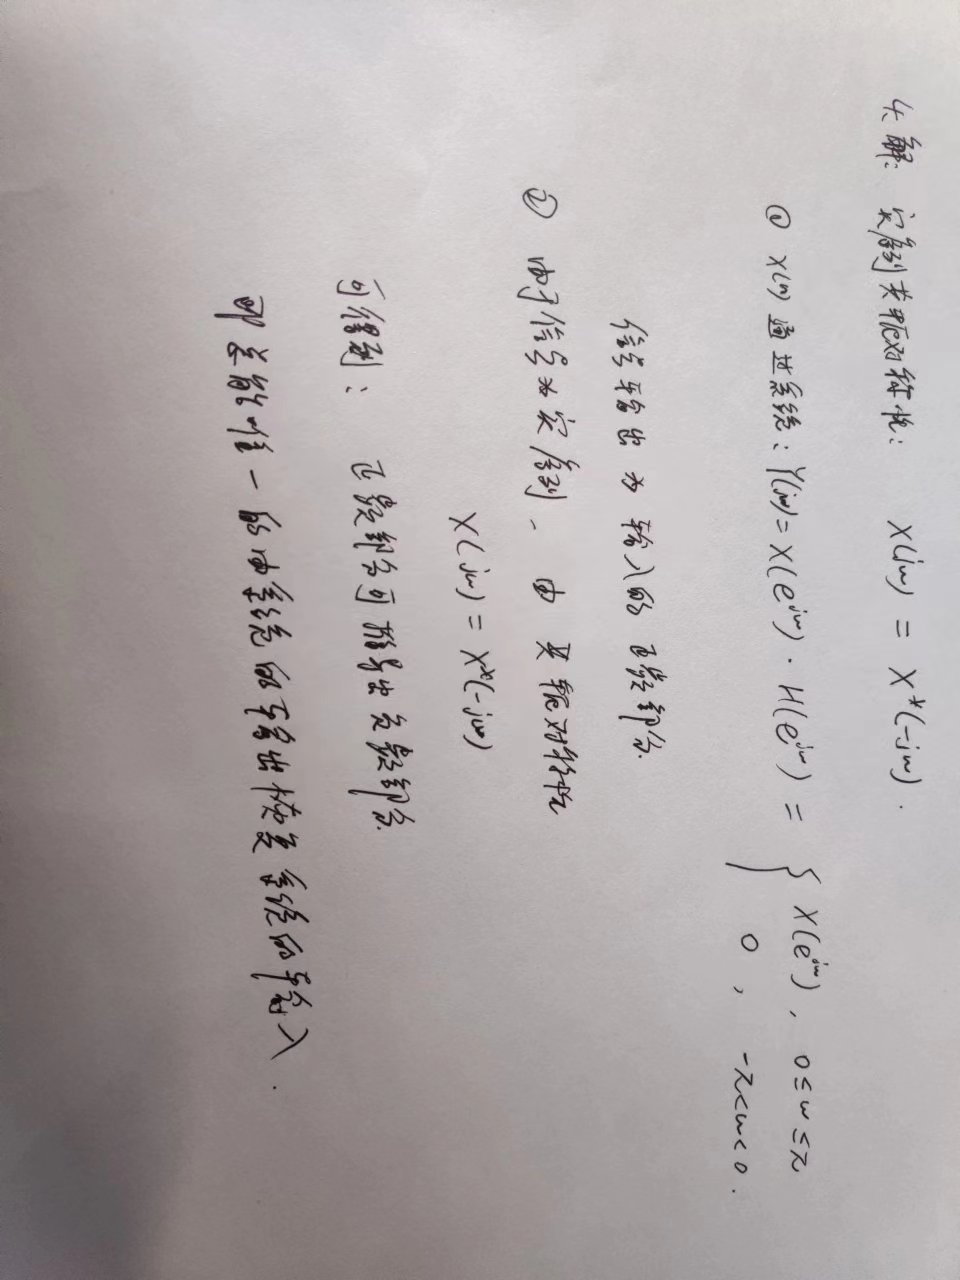 4. 解: 实序列共轭对称性: X(jw) = X*(-jw).
① x(n) 通过系统: Y(jw) = X(e^{jw}) · H(e^{jw}) = { X(e^{jw}), 0≤w≤π
0, -π<w<0.
信号输出为输入的正频部分.
② 由于信号为实序列, 由共轭对称性
X(jw) = X*(-jw)
可得到: 正频部分可推导出负频部分.
即总能唯一的由系统的输出恢复系统的输入.